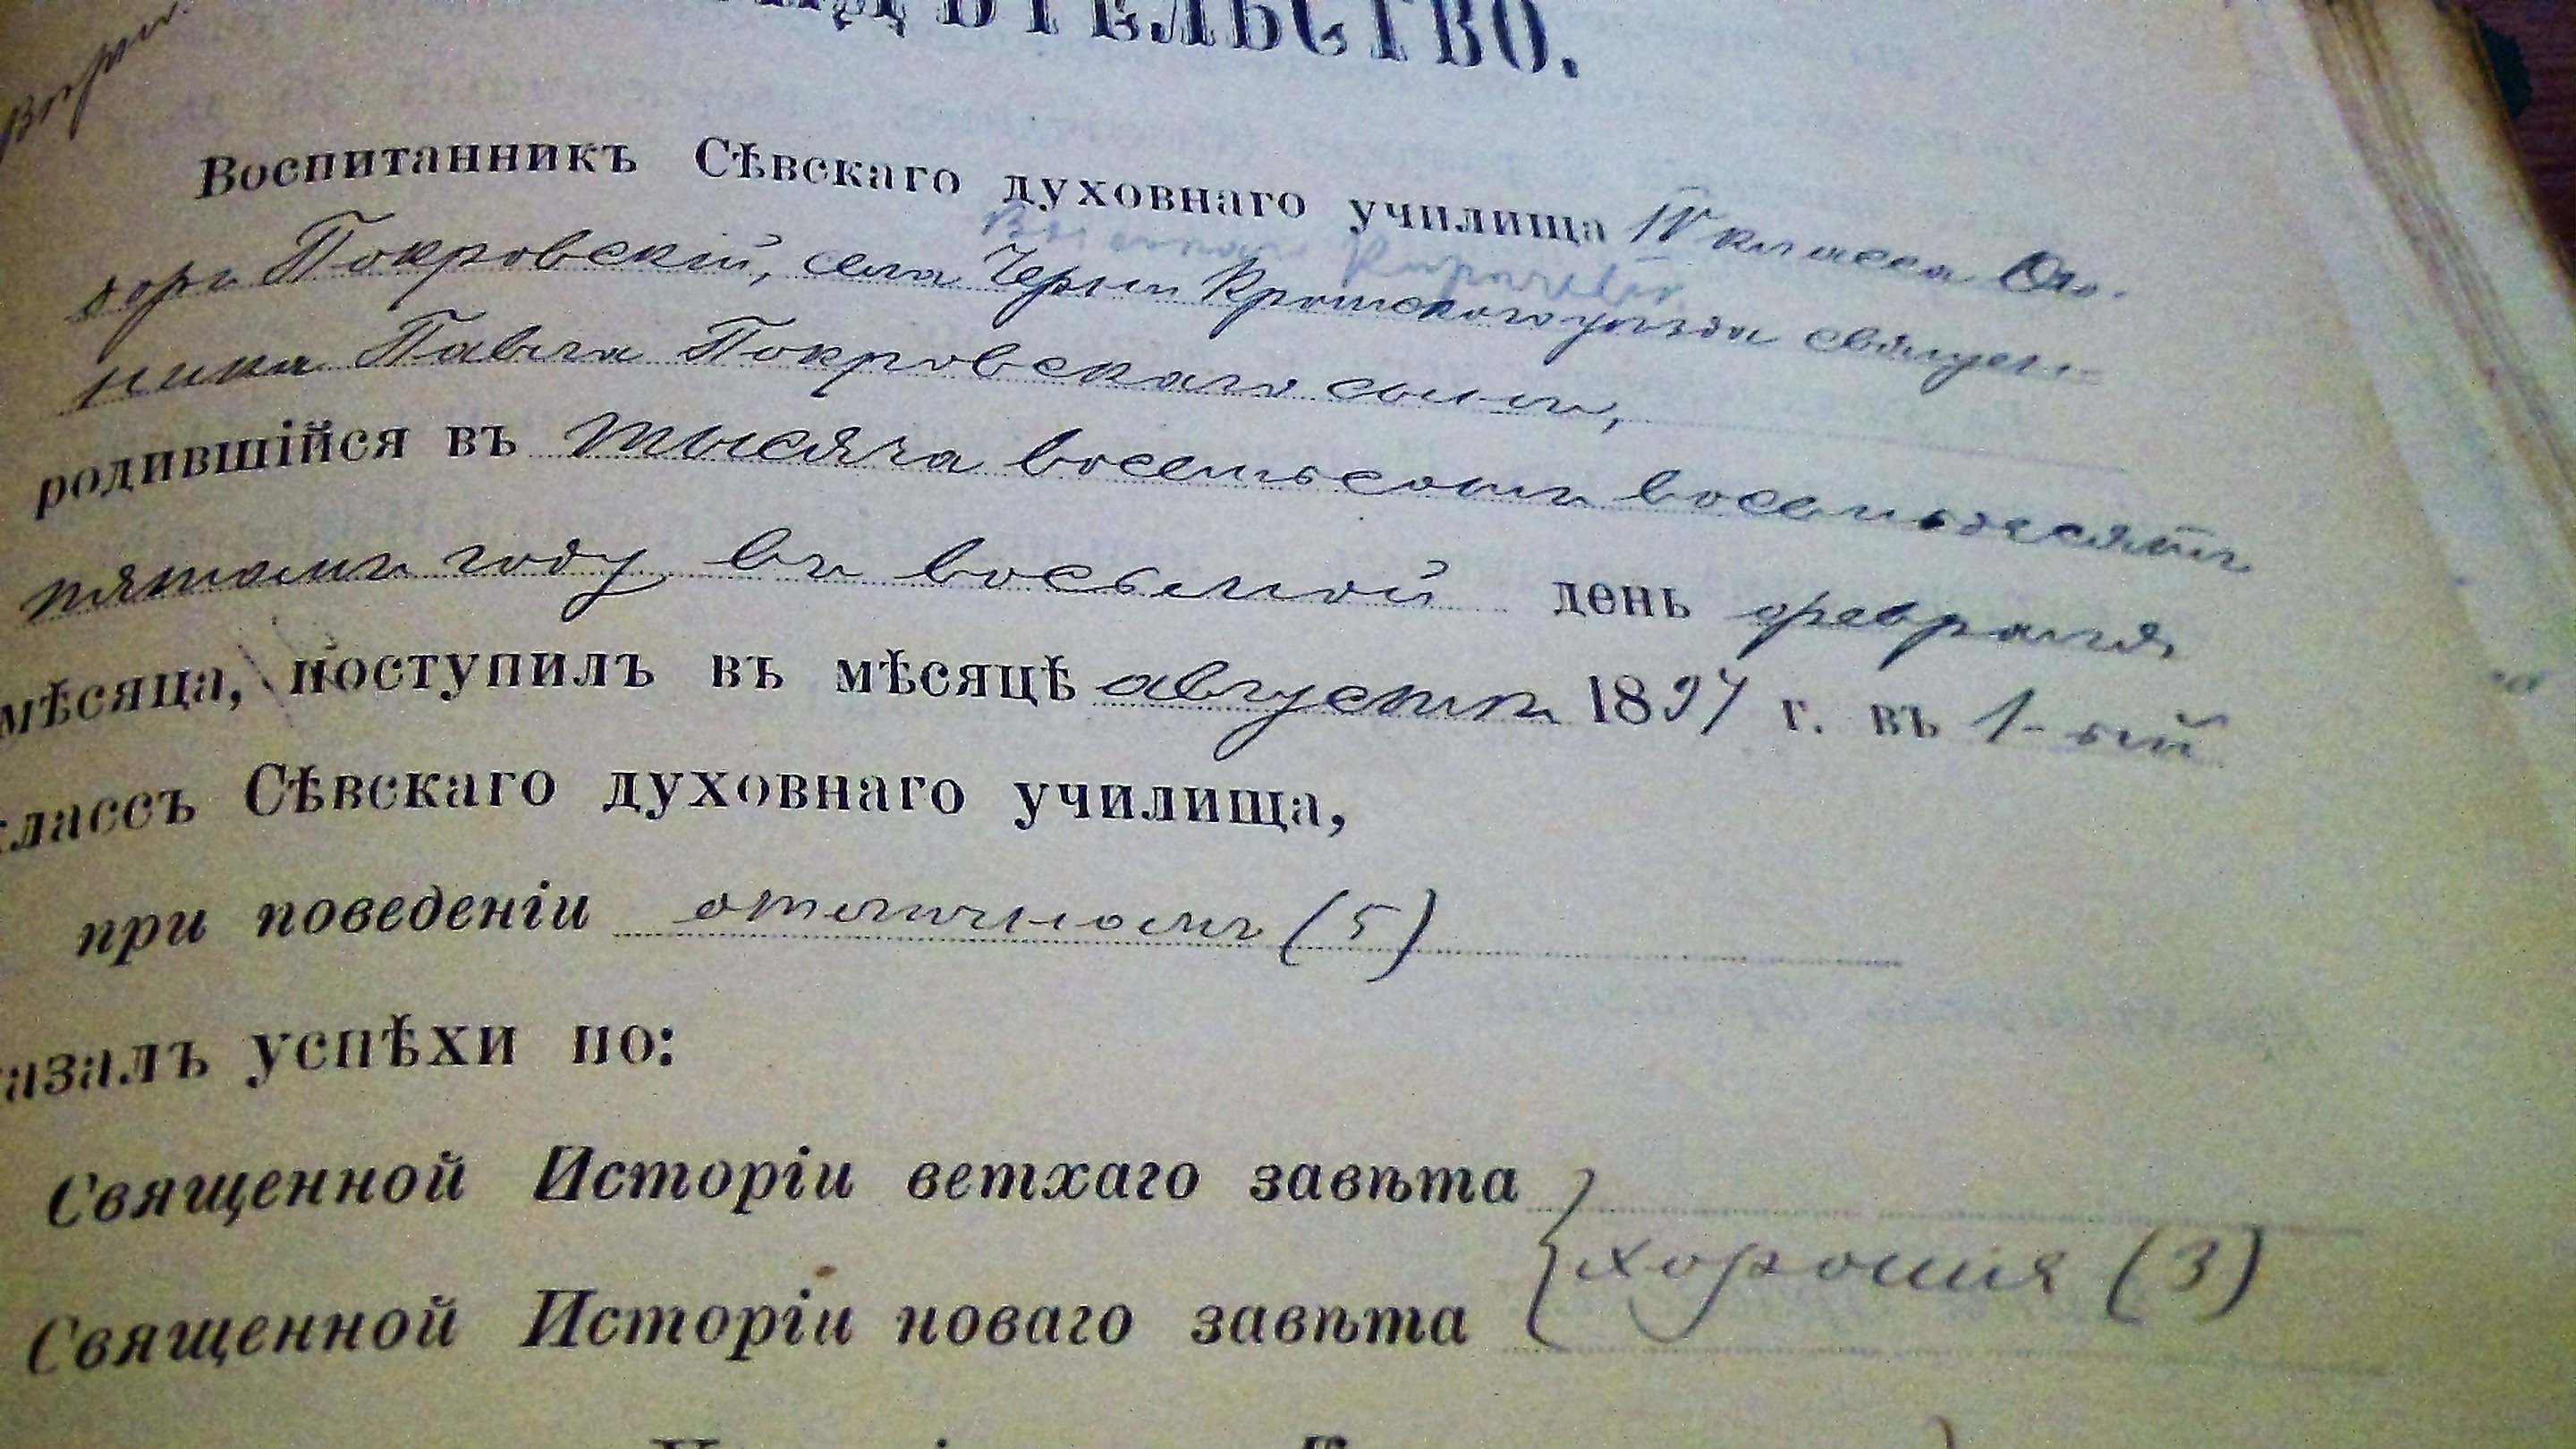 ДѢТЕЛЬСТВО.
Воспитанникъ Сѣвскаго духовнаго училища IV класса Ѳео-
доръ Покровскій, села Черни Кромскаго уѣзда священ-
ника Павла Покровскаго сынъ,
родившійся въ тысяча восемьсотъ восемьдесятъ
пятомъ году въ восьмой день февраля
мѣсяца, поступилъ въ мѣсяцѣ августѣ 1897 г. въ 1-ый
классъ Сѣвскаго духовнаго училища,
при поведеніи отличномъ (5)
азалъ успѣхи по:
Священной Исторіи ветхаго завѣта
хорошія (3)
Священной Исторіи новаго завѣта